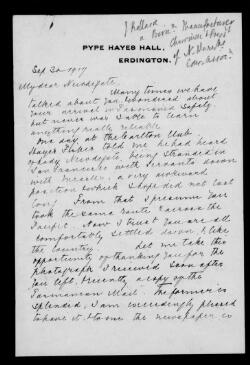 J Pollard
a Born Manufacturer
Churchwarden
of N. Warwicks
Con. Assoc.
PYPE HAYES HALL,
ERDINGTON.
Sep 30 1917
My dear Newdegate,
Many times we have
talked about you, wondered about
your arrival in Tasmania safely,
but never was able to learn
anything really reliable.
One day at the Carlton Club
told me he had heard
of Lady Newdigate being stranded in
San Francisco with servants down
with measles, a very awkward
position which I hope did not last
long. From that I presume you
took the same route & across the
Pacific. Now I trust you are all
comfortably settled down, & like
the country. Let me take this
opportunity of thanking you for the
photograph I received soon after
you left, & recently a copy of the
Tasmanian Mail. The former is
splendid, I am exceedingly pleased
to have it, to me the newspaper is